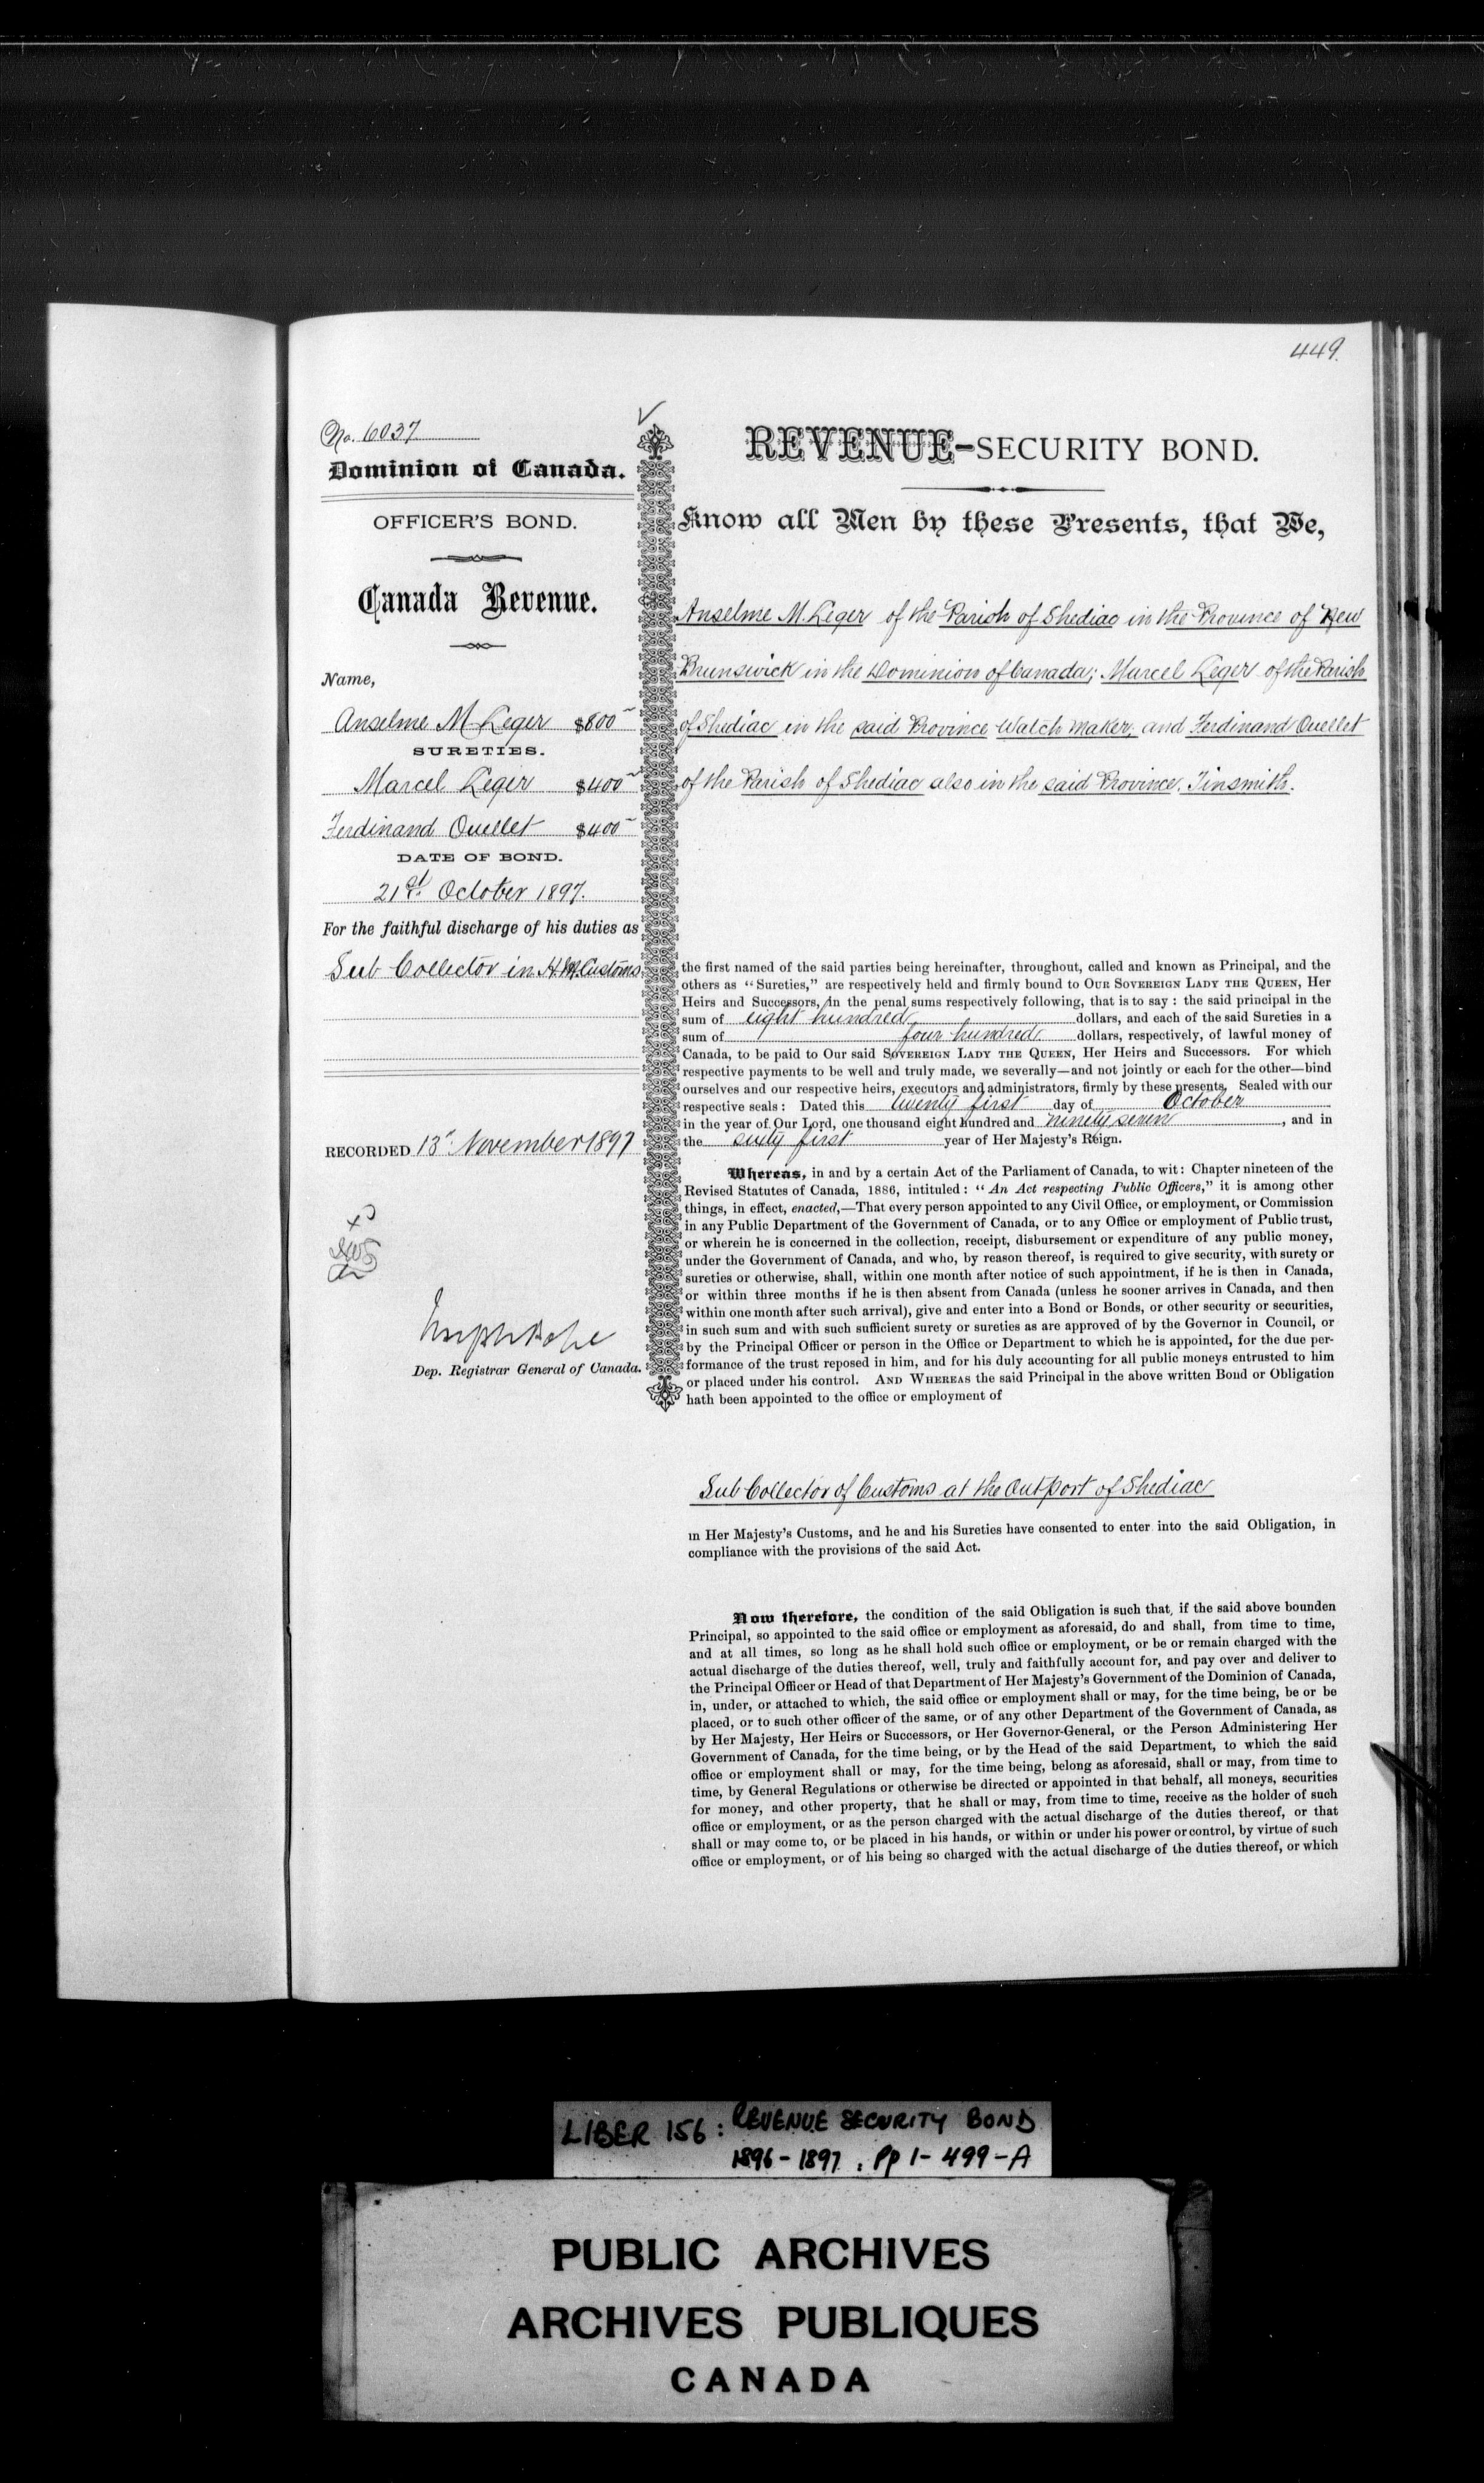 449.
No. 6037
Dominion of Canada.
OFFICER'S BOND.
Canada Revenue.
Name,
Anselme M. Leger $800
SURETIES.
Marcel Leger $400
Ferdinand Ouellet $400
DATE OF BOND.
21st October 1897.
For the faithful discharge of his duties as
Sub Collector in H.M. Customs
RECORDED 13th November 1897
Joseph Pope
Dep. Registrar General of Canada.
REVENUE-SECURITY BOND.
Know all Men by these Presents, that We,
Anselme M. Leger of the Parish of Shediac in the Province of New
Brunswick in the Dominion of Canada; Marcel Leger of the Parish
of Shediac in the said Province Watch maker; and Ferdinand Ouellet
of the Parish of Shediac also in the said Province, Tinsmith.
the first named of the said parties being hereinafter, throughout, called and known as Principal, and the
others as "Sureties," are respectively held and firmly bound to OUR SOVEREIGN LADY THE QUEEN, Her
Heirs and Successors, in the penal sums respectively following, that is to say: the said principal in the
sum of eight hundred dollars, and each of the said Sureties in a
sum of four hundred dollars, respectively, of lawful money of
Canada, to be paid to Our said SOVEREIGN LADY THE QUEEN, Her Heirs and Successors. For which
respective payments to be well and truly made, we severally—and not jointly or each for the other—bind
ourselves and our respective heirs, executors and administrators, firmly by these presents. Sealed with our
respective seals: Dated this twenty first day of October
in the year of Our Lord, one thousand eight hundred and ninety seven, and in
the sixty first year of Her Majesty's Reign.
Whereas, in and by a certain Act of the Parliament of Canada, to wit: Chapter nineteen of the
Revised Statutes of Canada, 1886, intituled: "An Act respecting Public Officers," it is among other
things, in effect, enacted,—That every person appointed to any Civil Office, or employment, or Commission
in any Public Department of the Government of Canada, or to any Office or employment of Public trust,
or wherein he is concerned in the collection, receipt, disbursement or expenditure of any public money,
under the Government of Canada, and who, by reason thereof, is required to give security, with surety or
sureties or otherwise, shall, within one month after notice of such appointment, if he is then in Canada,
or within three months if he is then absent from Canada (unless he sooner arrives in Canada, and then
within one month after such arrival), give and enter into a Bond or Bonds, or other security or securities,
in such sum and with such sufficient surety or sureties as are approved of by the Governor in Council, or
by the Principal Officer or person in the Office or Department to which he is appointed, for the due per-
formance of the trust reposed in him, and for his duly accounting for all public moneys entrusted to him
or placed under his control. AND WHEREAS the said Principal in the above written Bond or Obligation
hath been appointed to the office or employment of
Sub Collector of Customs at the Outport of Shediac
in Her Majesty's Customs, and he and his Sureties have consented to enter into the said Obligation, in
compliance with the provisions of the said Act.
Now therefore, the condition of the said Obligation is such that, if the said above bounden
Principal, so appointed to the said office or employment as aforesaid, do and shall, from time to time,
and at all times, so long as he shall hold such office or employment, or be or remain charged with the
actual discharge of the duties thereof, well, truly and faithfully account for, and pay over and deliver to
the Principal Officer or Head of that Department of Her Majesty's Government of the Dominion of Canada,
in, under, or attached to which, the said office or employment shall or may, for the time being, be or be
placed, or to such other officer of the same, or of any other Department of the Government of Canada, as
by Her Majesty, Her Heirs or Successors, or Her Governor-General, or the Person Administering Her
Government of Canada, for the time being, or by the Head of the said Department, to which the said
office or employment shall or may, for the time being, belong as aforesaid, shall or may, from time to
time, by General Regulations or otherwise be directed or appointed in that behalf, all moneys, securities
for money, and other property, that he shall or may, from time to time, receive as the holder of such
office or employment, or as the person charged with the actual discharge of the duties thereof, or that
shall or may come to, or be placed in his hands, or within or under his power or control, by virtue of such
office or employment, or of his being so charged with the actual discharge of the duties thereof, or which
LIBER 156: REVENUE SECURITY BOND
1896-1897. Pp 1-499-A
PUBLIC ARCHIVES
ARCHIVES PUBLIQUES
CANADA